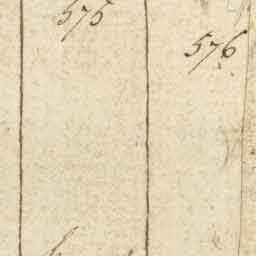 575
576